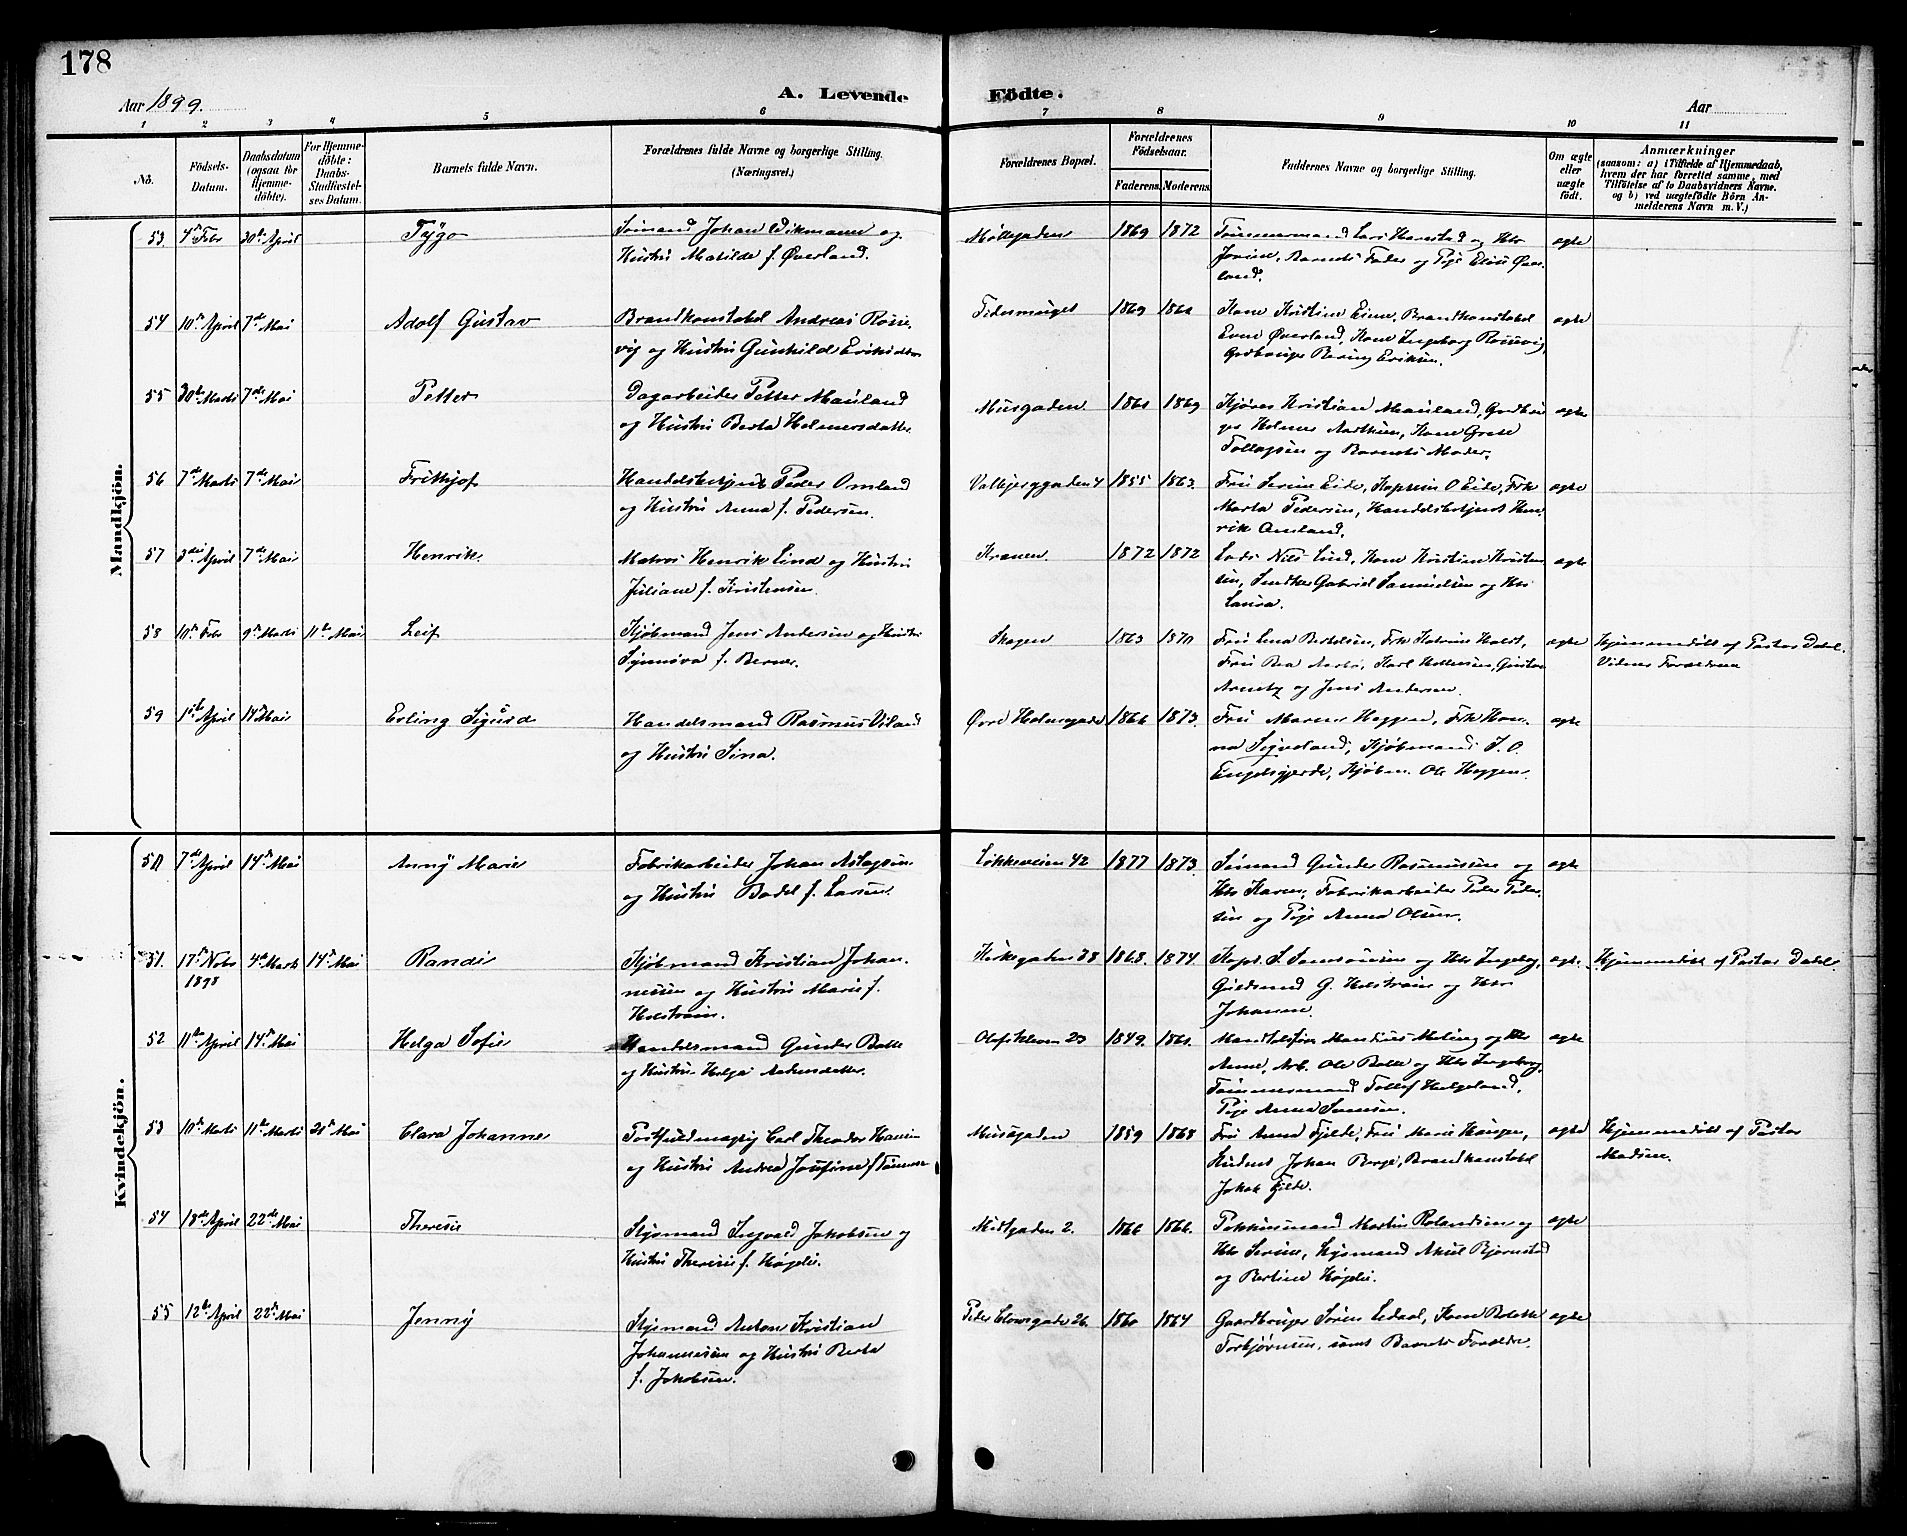 178
Aar 1899.
A. Levende Födte.
Aar
1 2 3 4 5 6 7 8 9 10 11
No.
Födsels-Datum.
Daabsdatum (ogsaa for Hjemme-döbte).
For Hjemme-döbte: Daabs-Stadfæstel-ses Datum.
Barnets fulde Navn.
Forældrenes fulde Navne og borgerlige Stilling.
(Næringsvei.)
Forældrenes Bopæl.
Forældrenes Födselsaar.
Faderens. Moderens.
Faddernes Navne og borgerlige Stilling.
Om ægte eller uægte födt.
Anmærkninger
(saasom: a) i Tilfælde af Hjemmedaab,
hvem der har forrettet samme, med
Tilföielse af to Daabsvidners Navne.
og b) ved uægtefödte Börn An-
melderens Navn m. V.)
Mandkjön.
53 4de Febr 30te April Tygo
Sömand Johan Wikmann og
Hustru Matilde f. Øverland.
Möllegaden 1869 1872
Tömmermand Lars Harestad og Hstr
Barnets Fader og Pige Øver-
land.
ægte
54 10de April 7de Mai Adolf Gustav
Brandkonstabel Andreas Rosse-
vig og Hustru Gunhild Eriksdatter
1869
Kone Kristine Brandkonstabel
Even Øverland, Kone Ingeborg Rossevig,
Gadbruger Eriksen.
ægte
55 30te Marts 7de Mai Petter
Dagarbeider Petter Mauland
og Hustru Berta Holmersdatter
Musgaden 1869
Kristian Mauland,
Kone Grete
Tollagsen og Barnets Moder.
ægte
56 7de Marts 7de Mai Frithjof
Handelsbetjent Peder Omland
og Hustru Anna f. Pedersen.
Valbjerggaden 4 1855 1863.
Fru Serine Eide, Kaptein O Eide, Frk
Marta Pedersen, Handelsbetjent Hen-
rik Omland.
ægte
57 3die April 7de Mai Henrik.
Matros Henrik Lind og Hustru
Juliane f. Kristensen.
Kranen. 1872 1872
Lods Nils Lind, Kone Kristine Kristen-
sen, Gabriel Samuelsen og Hstr
Laura.
ægte
58 10de Febr 9de Marts 11te Mai Leif
Kjöbmand Jens Andersen og Hustru
Synnöva f. Berner.
Skagen 1863 1870
Fru Lena Bertelsen, Frk Katrine Holdt,
Fru Karl Gustav
og Jens Andersen.
ægte
Hjemmedöbt af Pastor Dahl.
Vidner Forældrene
59 1ste April 14de Mai Erling Sigurd
Handelsmand Rasmus Viland
og Hustru Sina.
Øvre Holmegade 1866 1873.
Fru Maren Heggen, Frk Han-
na Sigveland, Kjöbmand S. O.
Engelsgjerde, Kjöbm. Ole Heggen.
ægte
Kvindekjön.
50 7de April 14de Mai Anny Marie
Fabrikarbeider Johan Aslagsen
og Hustru Bodel f. Larsen.
Lökkeveien 42 1877 1873.
Sömand Gunder Rasmussen og
Hstr Karen, Fabrikarbeider Peder Peder-
sen og Pige Anna Olsen.
ægte
51. 17de Novbr 1898 4de Marts 14de Mai Randi
Kjöbmand Kristian Johan-
nessen og Hustru Marie f.
Holstrøm.
Kirkegaden 38 1868. 1874.
Kapt. S. og Hstr Ingeborg,
Guldsmed G. Holstrøm og Hstr
Johanne.
ægte.
Hjemmedöbt af Pastor Dahl.
52 11te April 14de Mai Helga Sofie
Handelsmand Gunder Bakke
og Hustru Helga
Olafskleven 23 1849.
Meling og Hstr
Anne, Arb. Ole og Hstr Ingeborg,
Tömmermand Tollef Helgeland,
Pige Anna
ægte
53 10de Marts 11te Marts 21de Mai Clara Johanne
Postfuldmægtig Carl Theodor Hansen
og Hustru Andrea Josefine f
Musegaden 1859 1868
Fru Anna Fjelde, Fru Marie Haugen,
Student Johan Berge, Brandkonstabel
Jakob Fjelde.
ægte
Hjemmedöbt af Pastor
Madsen.
54 18de April 22de Mai Therese
Styrmand Ingvald Jakobsen og
Hustru Therese f. Høylie.
Midtgaden 2. 1866 1866.
Martin Rolandsen og
Hstr Serine, Styrmand Bjørnstad
og Bertine Høylie.
ægte
55 12te April 22de Mai Jenny
Styrmand Anton Kristian
Johannesen og Hustru Berta
f. Jakobsen.
Peder Clowsgade 26. 1860 1864
Gaardbruger Sören Kone
Torbjörnsen, samt Barnets Forældre.
ægte